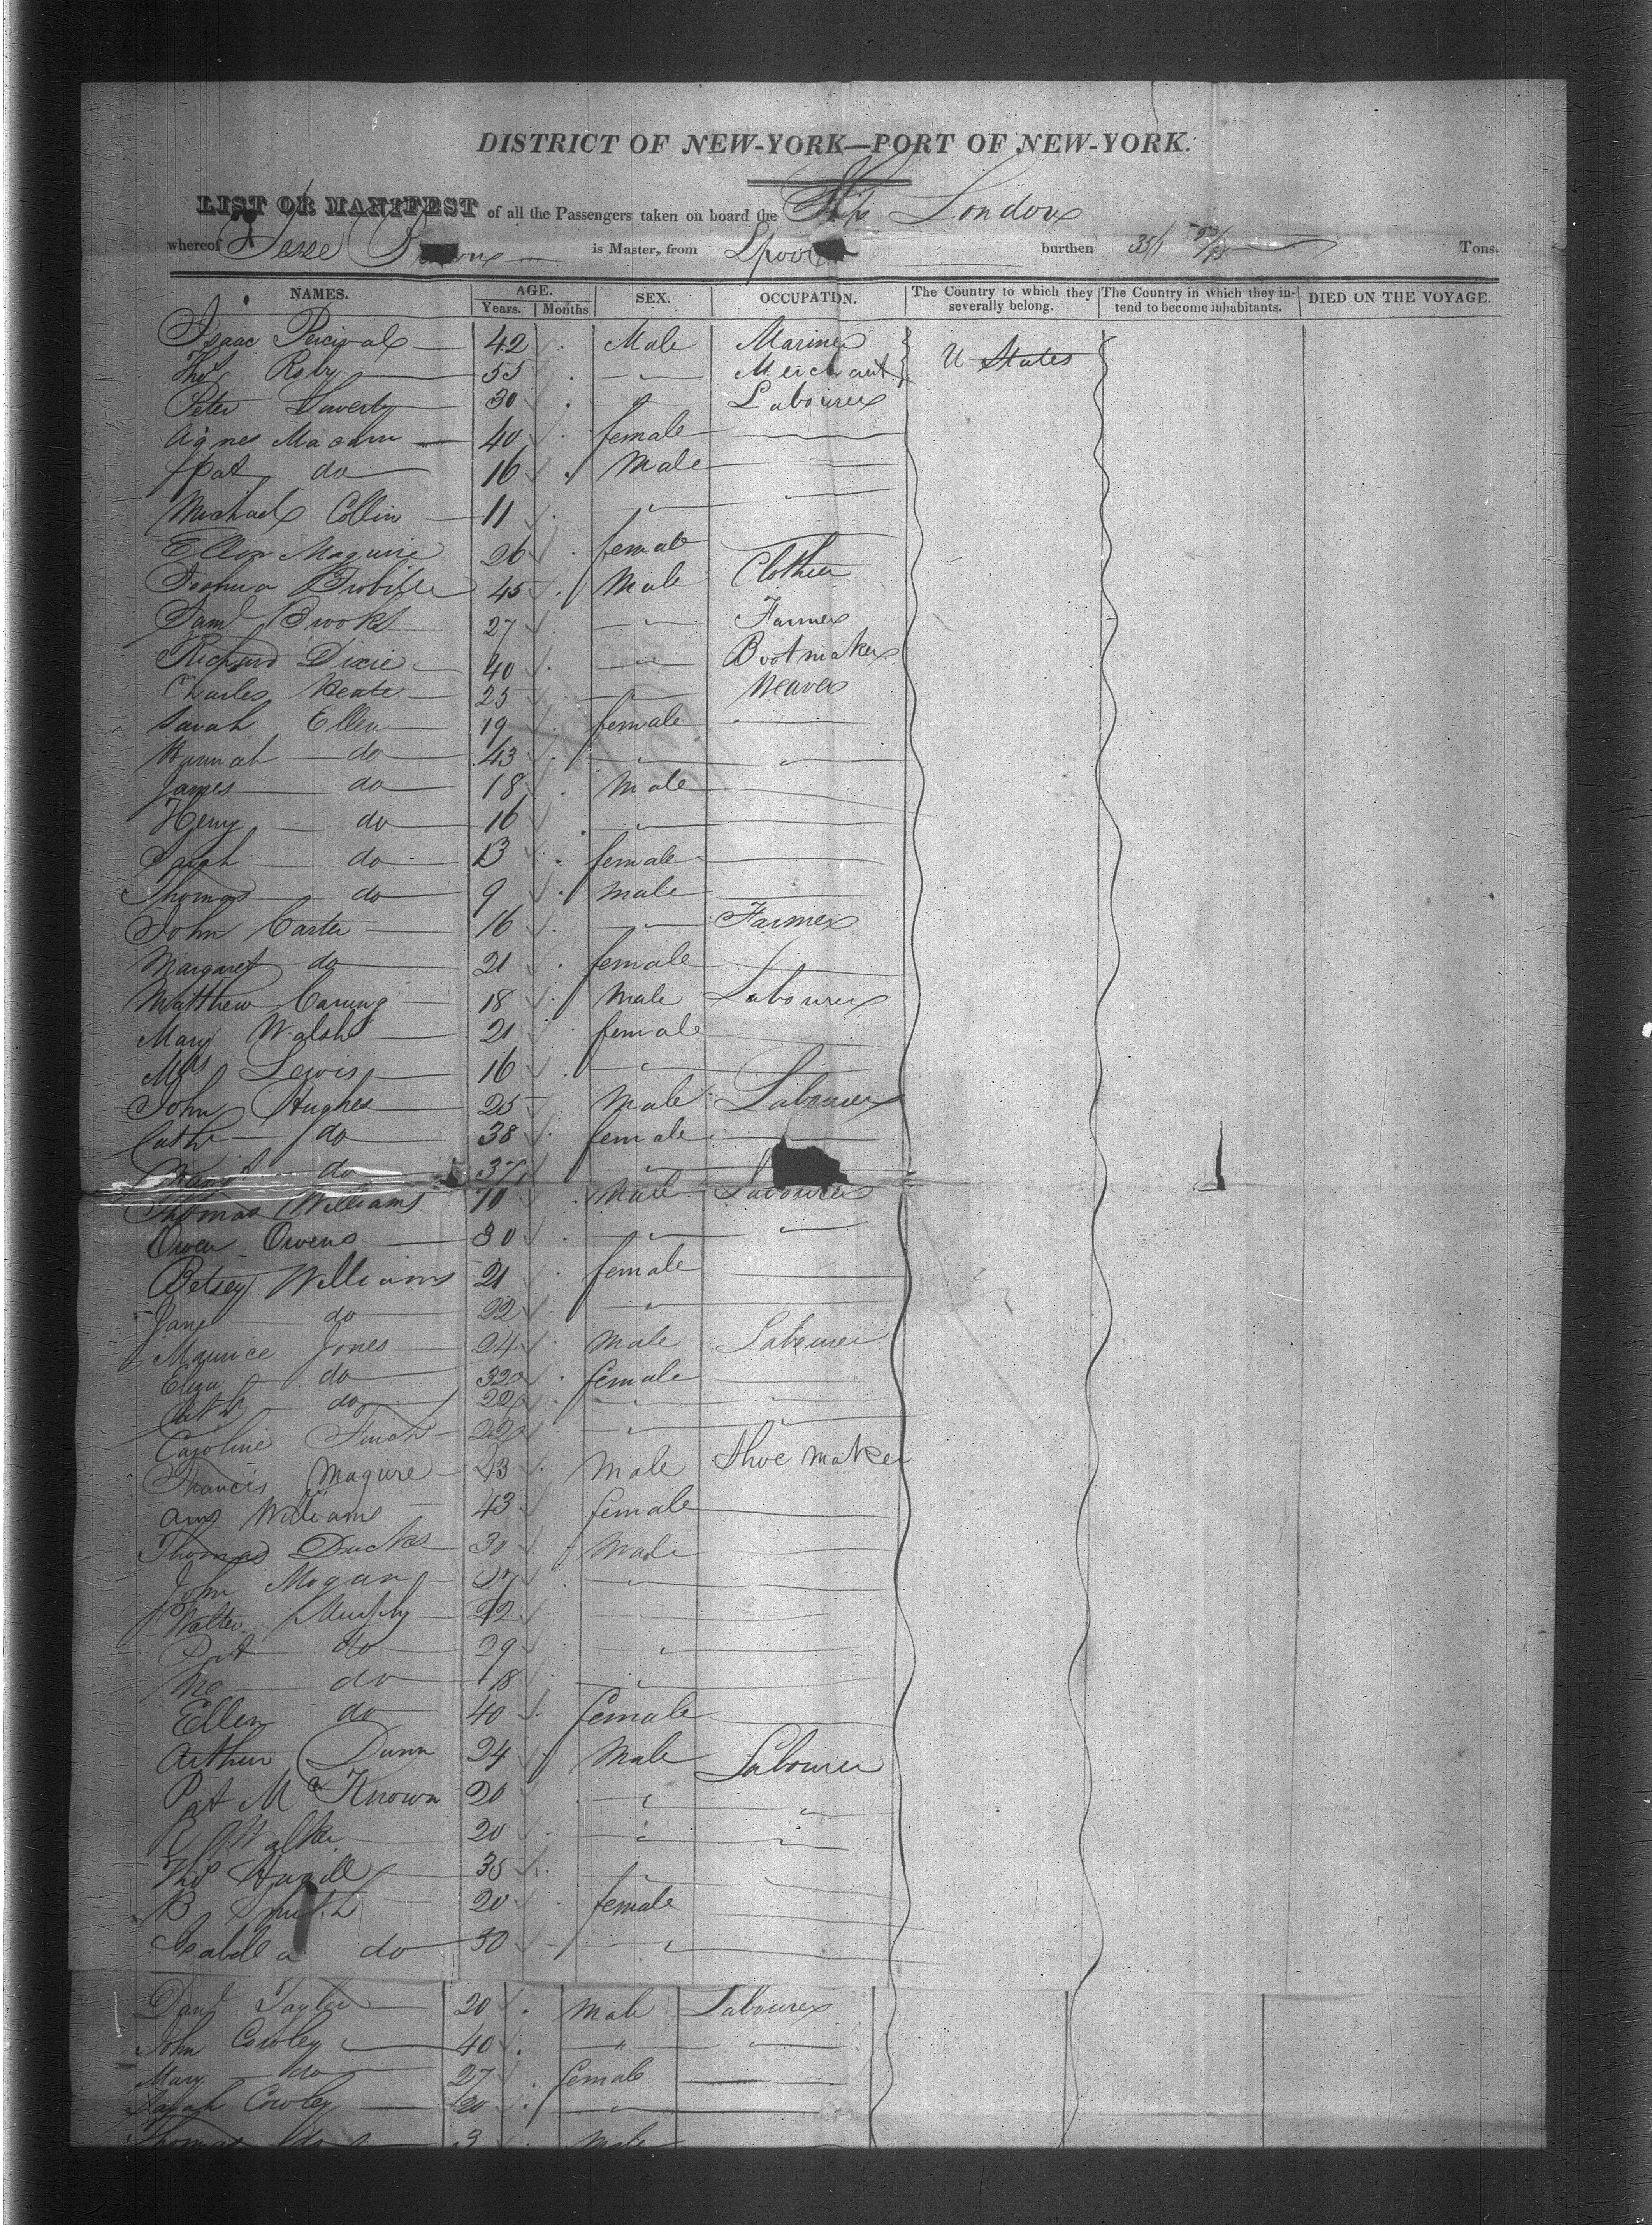 DISTRICT OF NEW-YORK—PORT OF NEW-YORK.
LIST OR MANIFEST of all the Passengers taken on board the Ship London
whereof Jesse is Master, from Lpool burthen Tons.
NAMES. AGE. SEX. OCCUPATION. The Country to which they severally belong. The Country in which they intend to become inhabitants. DIED ON THE VOYAGE.
Years. Months
Isaac Percival 42 Male Mariner
Thos Roby 55 " Merchant U States
Peter 30 " Labourer
Agnes 40 female
Pat do 16 Male
Michael Collin 11 "
Ellen Maguire 26 female
Joshua 45 Male Clothier
Saml Brooks 27 " Farmer
Richard Dixie 40 " Bootmaker
Charles 25 " Weaver
Sarah Ellen 19 female
Hannah do 43 " "
James do 18 male
Henry do 16 "
Sarah do 13 female
Thomas do 9 male
John Carter 16 " Farmer
Margaret do 21 female
Matthew 18 Male Labourer
Mary Walsh 21 female
Mrs Lewis 16 "
John Hughes 25 Male Labourer
Cath do 38 female
do 37 "
Thomas Williams 10 Male Labourer
Owen Owens 30 " "
Betsey Williams 21 female
Jane do 22 "
Maurice Jones 24 male Labourer
Eliza do 32 female
Cath do 22 "
Caroline Finch 22 " "
Francis Maguire 23 Male Shoe maker
Ann Williams 43 female
Thomas Ducks 30 Male
John Mogan 27 "
Walter Murphy 22
Pat do 29 "
do 18 "
Ellen do 40 female
Arthur Dunn 24 Male Labourer
Pat Mc Known 20 " "
Walker 20 " "
Thos 35 "
B Smith 20 female
Isabella do 30 "
Danl Taylor 20 Male Labourer
John Cowley 40 " "
Mary do 27 female
Sarah Cowley 20 "
Thomas do 3 Male